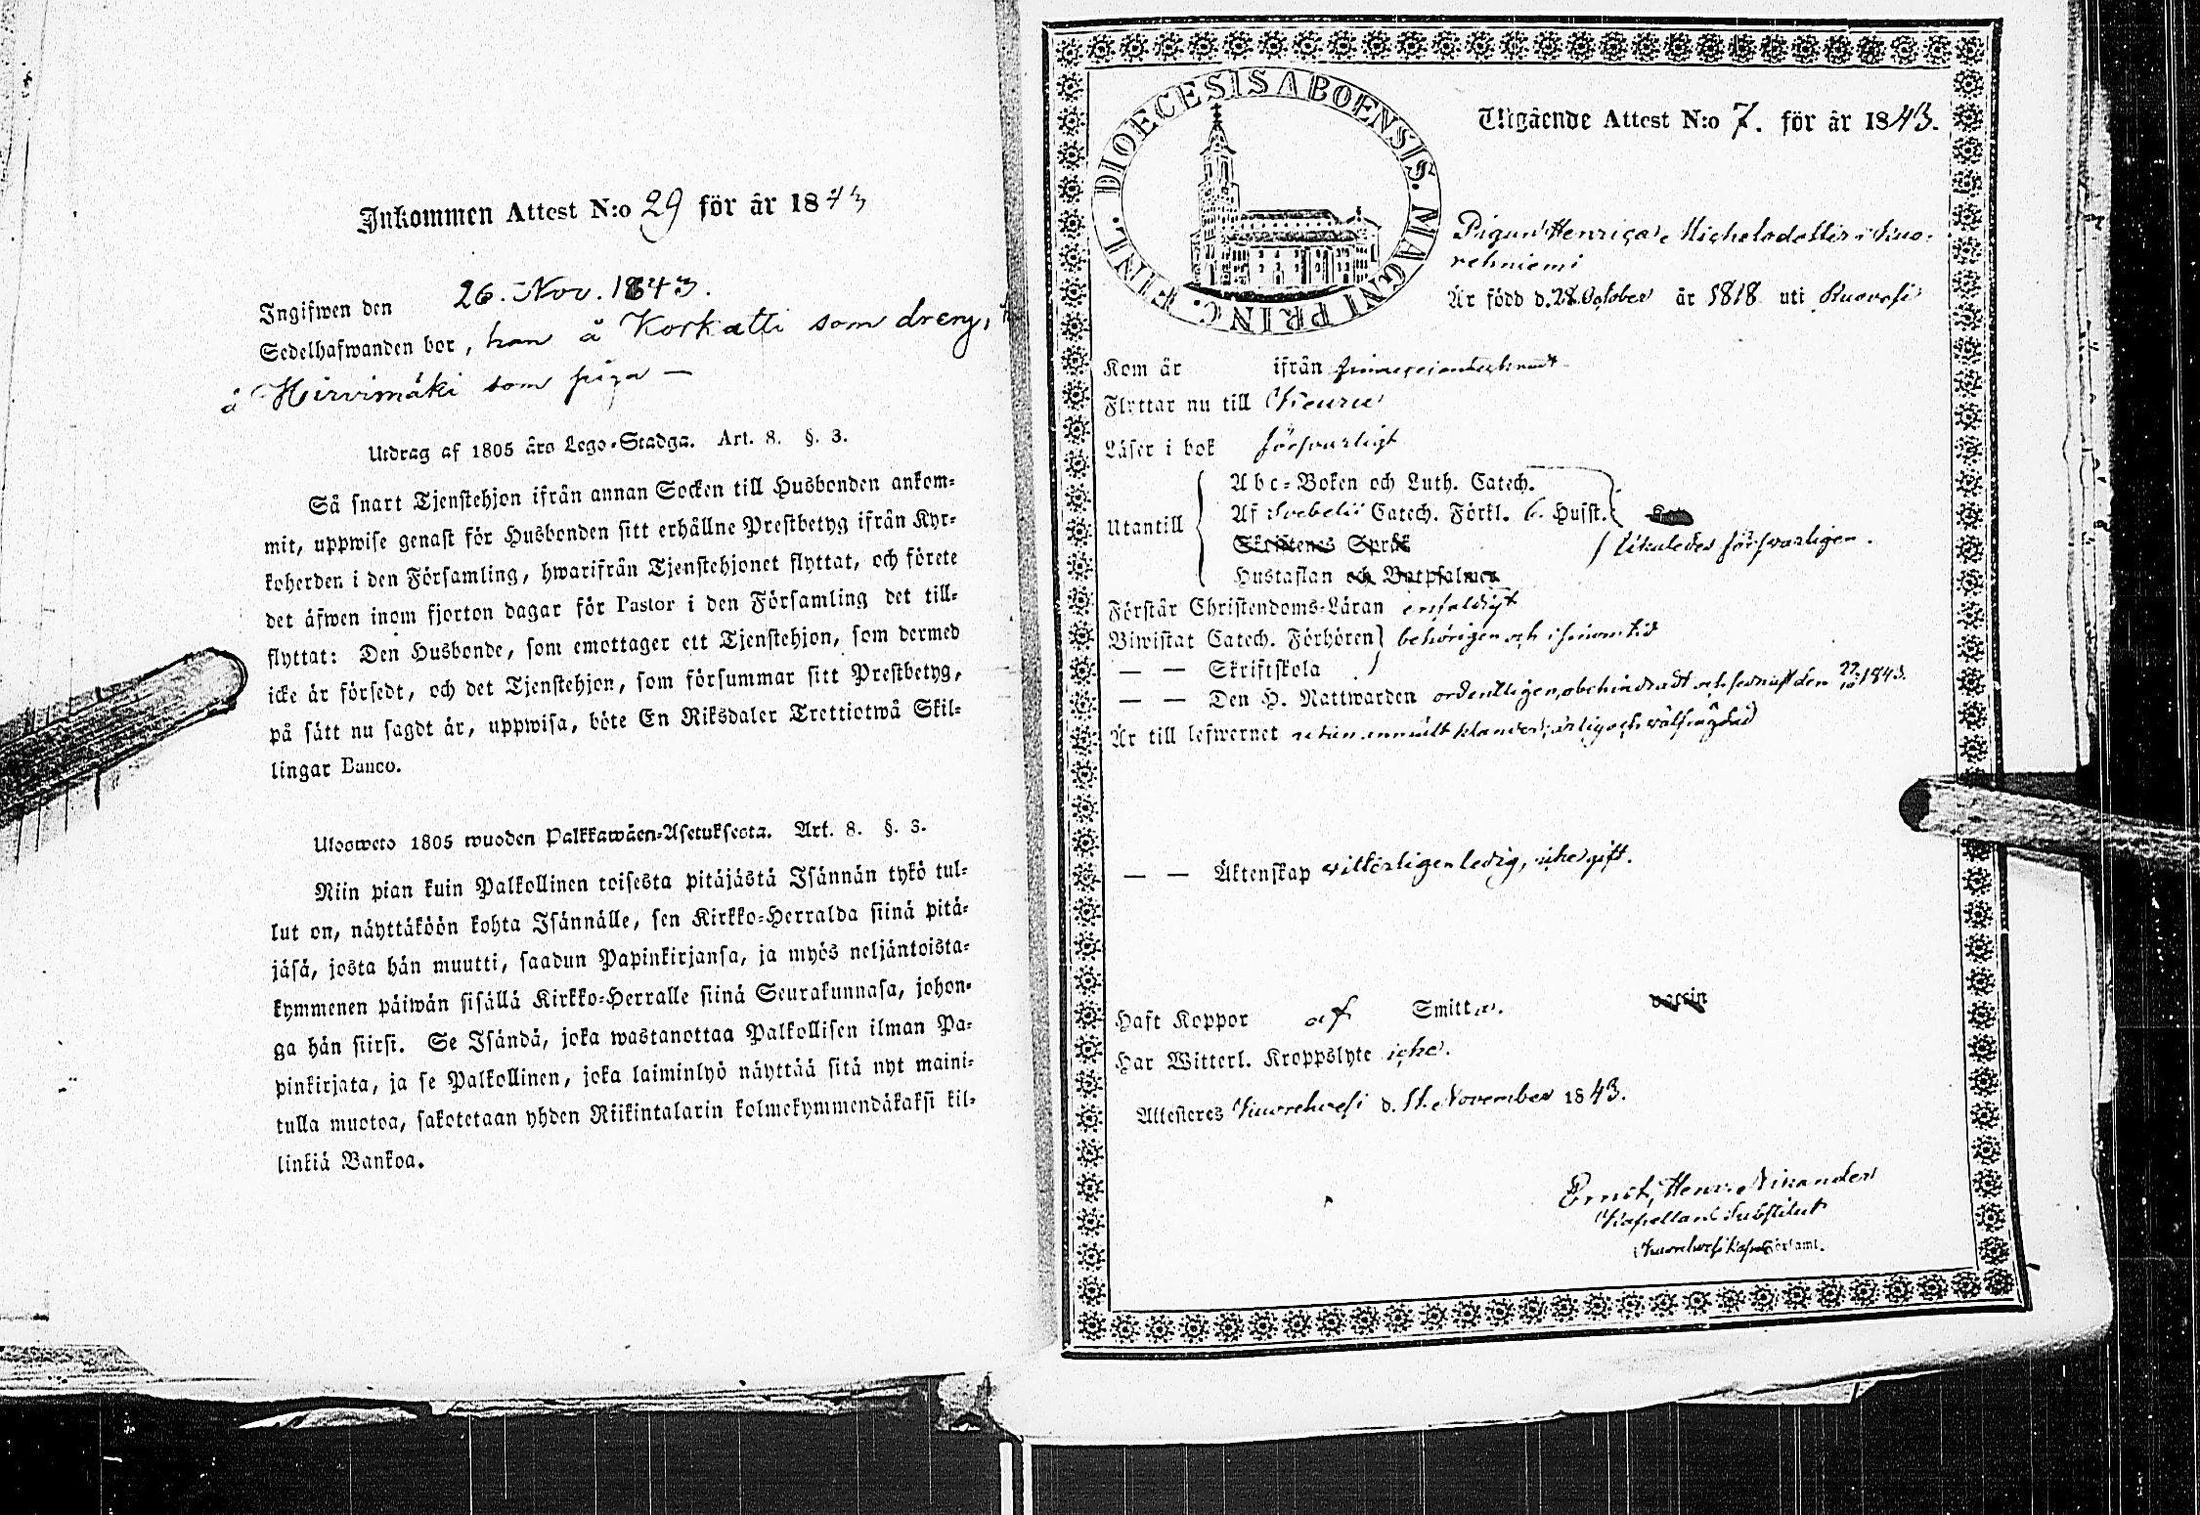 Inkommen Attest N:o 29 för år 1843
Ingifwen den 26. Nov. 1843.
Sedelhafwanden bor, han å Korkatti som dreng,
å Hirvimäki som piga —
Utdrag af 1805 års Lego-Stadga. Art. 8. §. 3.
Så snart Tjenstehjon ifrån annan Socken till Husbonden ankom-
mit, uppwise genast för Husbonden sitt erhållne Prestbetyg ifrån Kyr-
koherden i den Församling, hwarifrån Tjenstehjonet flyttat, och förete
det äfwen inom fjorton dagar för Pastor i den Församling det till-
flyttat: Den Husbonde, som emottager ett Tjenstehjon, som dermed
icke är försedt, och det Tjenstehjon, som försummar sitt Prestbetyg,
på sätt nu sagdt är, uppwisa, böte En Riksdaler Trettiotwå Skil-
lingar Banco.
Ulosweto 1805 wuoden Palkkawäen-Asetuksesta. Art. 8. §. 3.
Niin pian kuin Palkollinen toisesta pitäjästä Isännän tykö tul-
lut on, näyttäköön kohta Isännälle, sen Kirkko-Herralda siinä pitä-
jäsä, josta hän muutti, saadun Papinkirjansa, ja myös neljäntoista-
kymmenen päiwän sisällä Kirkko-Herralle siinä Seurakunnasa, johon-
ga hän siirsi. Se Isändä, joka wastanottaa Palkollisen ilman Pa-
pinkirjata, ja se Palkollinen, joka laiminlyö näyttää sitä nyt maini-
tulla muotoa, sakotetaan yhden Riikintalarin kolmekymmendäkaksi kil-
linkiä Bankoa.
DIOECESIS ABOENSIS. MAGNI PRINC. FINL.
Utgående Attest N:o 7. för år 1843.
Pigan Henrica Michelsdotter i Kuo-
rehniemi
Är född d. 28. October år 1818 uti Ruovesi
Kom år ifrån
Flyttar nu till Keuru
Läser i bok försvarligt
Utantill
Abc-Boken och Luth. Catech.
Af Svebelii Catech. Förkl. 6. Husst.
Skriftenes Språk
Hustaflan och Botpsalmer
likaledes försvarligen.
Förstår Christendoms-Läran enfaldigt
Biwistat Catech. Förhören behörigen och i sinom tid
— — Skriftskola
— — Den H. Nattwarden ordentligen, obehindradt och sednast den 22/10 1843.
Är till lefwernet utan anmält klander, ärlig och välfrägdad
— — Äktenskap vitterligen ledig, icke gift.
Haft Koppor af Smitta. vaccin
Har Witterl. Kroppslyte icke.
Attesteres Kuorehvesi d. 11. November 1843.
Ernst Henr. Nikander
Kapellans Substitut
i Kuorehvesi Kapell Församl.